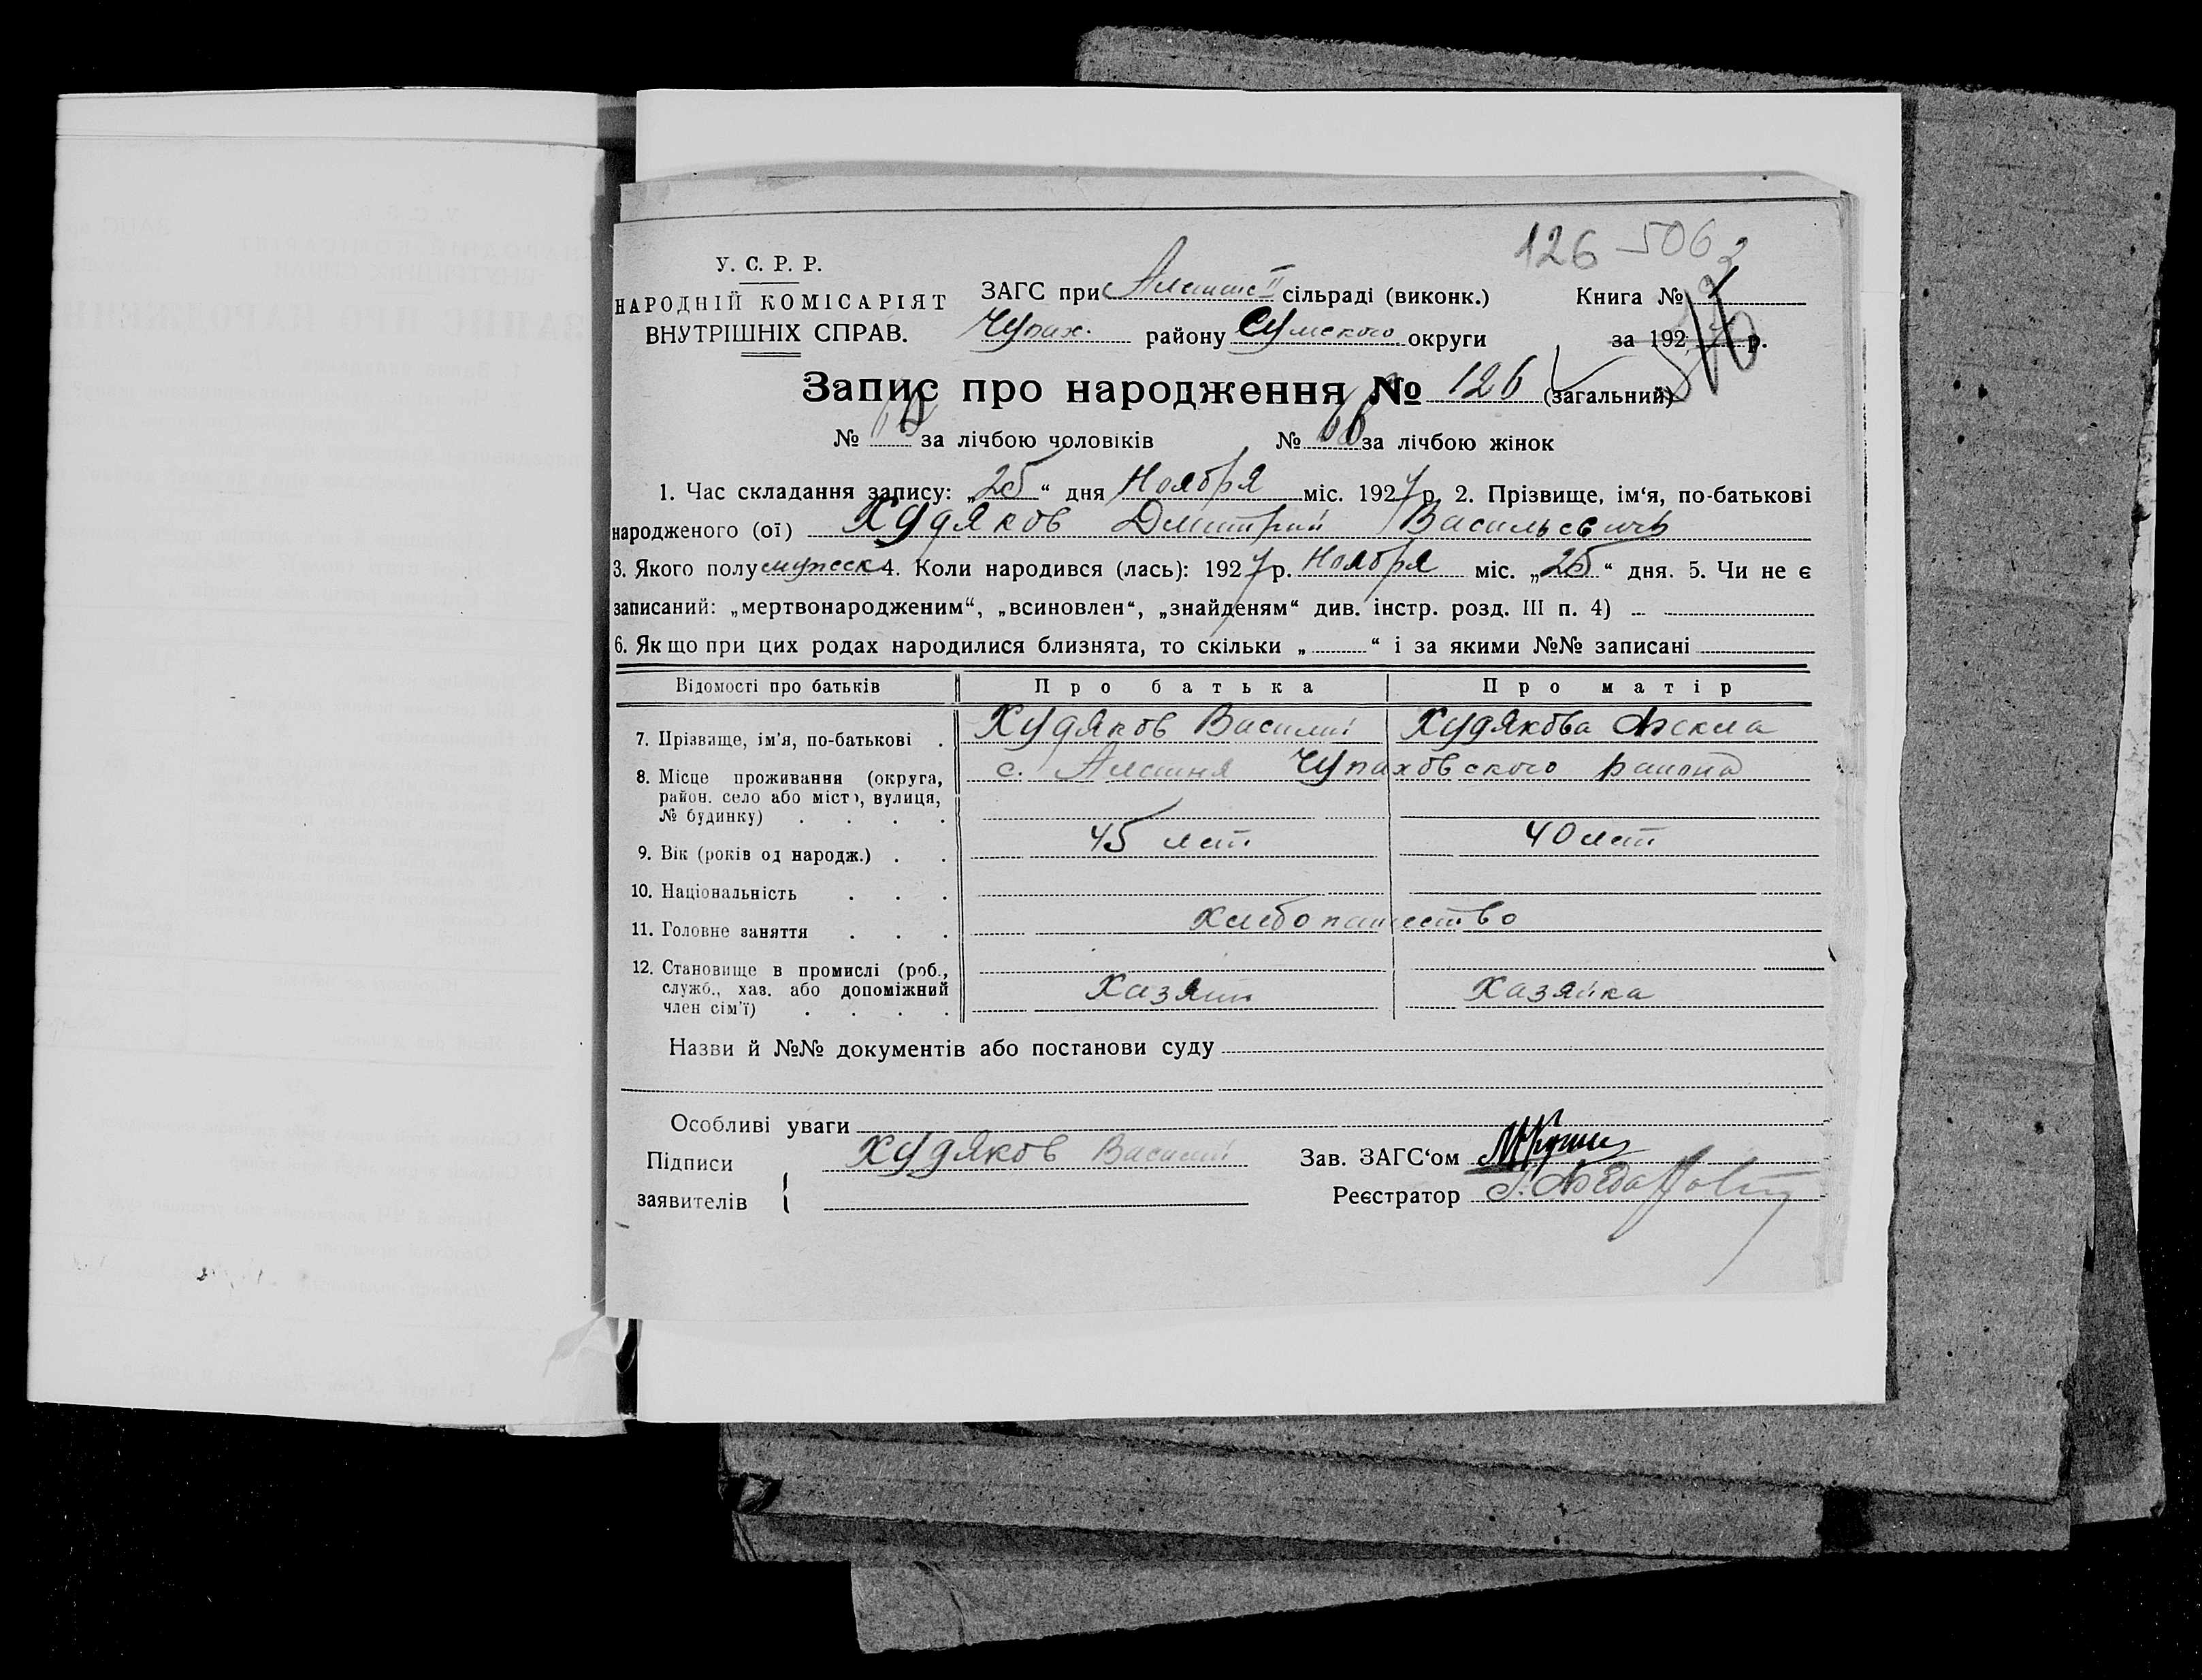 126 506
У. С. Р. Р.
НАРОДНІЙ КОМІСАРІЯТ
ВНУТРІШНІХ СПРАВ.
ЗАГС при II сільраді (виконк.)
Чупах. району Сумского округи
Книга №
за 1927 р.
Запис про народження № 126 (загальний)
№ за лічбою чоловіків № 66 за лічбою жінок
1. Час складання запису: „25“ дня Ноября міс. 1927 р. 2. Прізвище, ім‘я, по-батькові
народженого (ої) Худяков Дмитрий Васильевичь
3. Якого полу мужеск 4. Коли народився (лась): 1927 р. Ноября міс. „25“ дня. 5. Чи не є
записаний: „мертвонародженим“, „всиновлен“, „знайденям“ див. інстр. розд. III п. 4)
6. Як що при цих родах народилися близнята, то скільки „ “ і за якими №№ записані
Відомості про батьків Про батька Про матір
7. Прізвище, ім‘я, по-батькові . Худяков Василий Худякова Фекла
8. Місце проживання (округа, район. село або місто, вулиця, № будинку) . . . . с. Алешня Чупаховского района
9. Вік (років од народж.) . . 45 лет 40 лет
10. Національність . . .
11. Головне заняття . . . Хлебопашество
12. Становище в промислі (роб., служб., хаз. або допоміжний член сім‘ї) . . . . Хазяин Хазяйка
Назви й №№ документів або постанови суду
Особливі уваги
Підписи заявителів Худяков Василий
Зав. ЗАГС‘ом
Реєстратор